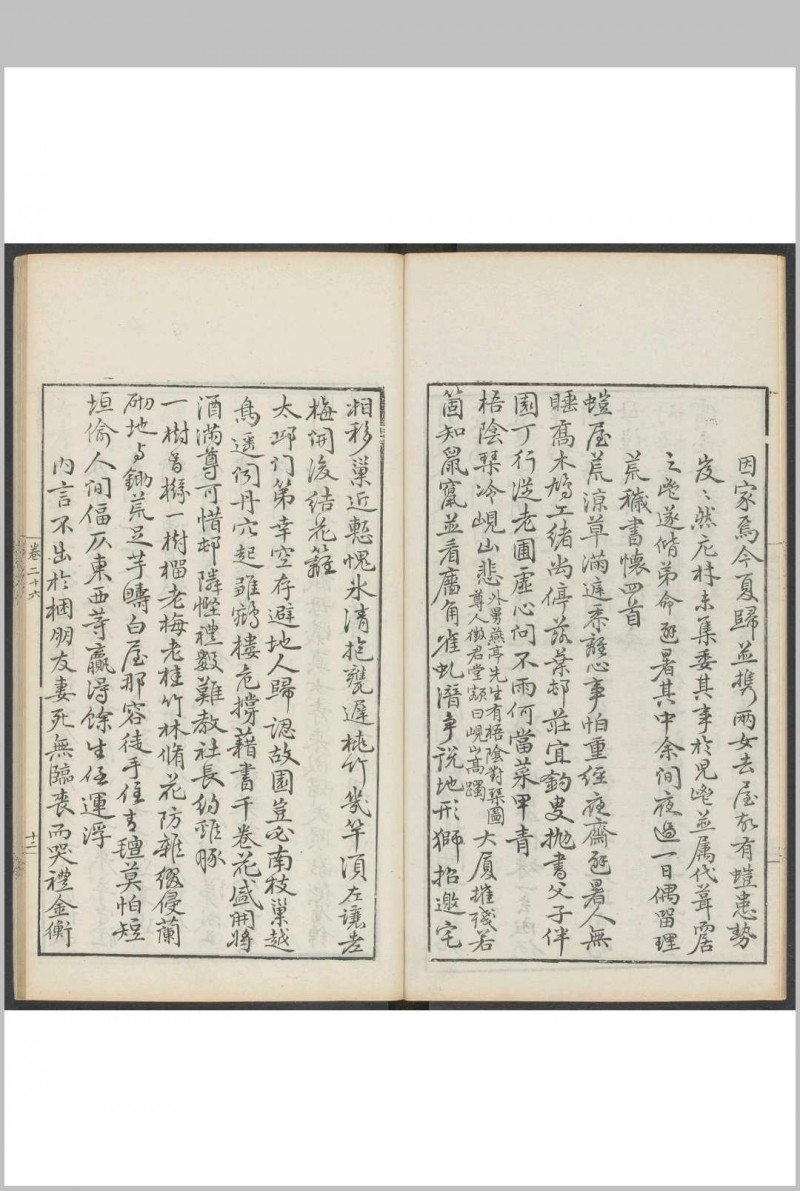 因家焉今夏歸並携兩女去屋故有螘患勢
岌〻然庀材未集委其事於兒𡖖並属代葺
之𡖖遂偕弟命避暑其中余間夜過一日偶留理
荒穢書懷四首
螘屋荒涼草滿庭乘離心事怕重經夜齋避暑人無
睡喬木鳩工緒尚停茲葉邨莊宜釣叟拋書父子伴
園丁行從老圃虛心問不雨何當菜甲青
梧陰琹冷峴山悲外舅燕亭先生有梧陰對琹圖
尊人徵君堂額曰峴山高躅
大厦摧殘若
箇知鼠竄並看廥角雀虬潛爭說地形獅招邀宅
相移巢近慙愧氷清抱甕遲桃竹幾竿須左讓老
梅開後結花籬
太邱门第幸空存避地人歸認故園豈必南枝巢越
鳥遥從丹穴起雛鵷樓危撐藉書千卷花盛開將
酒滿尊可惜邨隣慳禮數難教社長約雞豚
一樹香櫞一樹榴老梅老桂竹林脩花防雜綴侵蘭
砌地与鋤荒足芋疇白屋那容徒手住青氊莫怕短
垣偷人间偪仄東西等贏得餘生任運浮
內言不出於梱朋友妻死無臨喪而哭禮金衡
卷二十六
十二